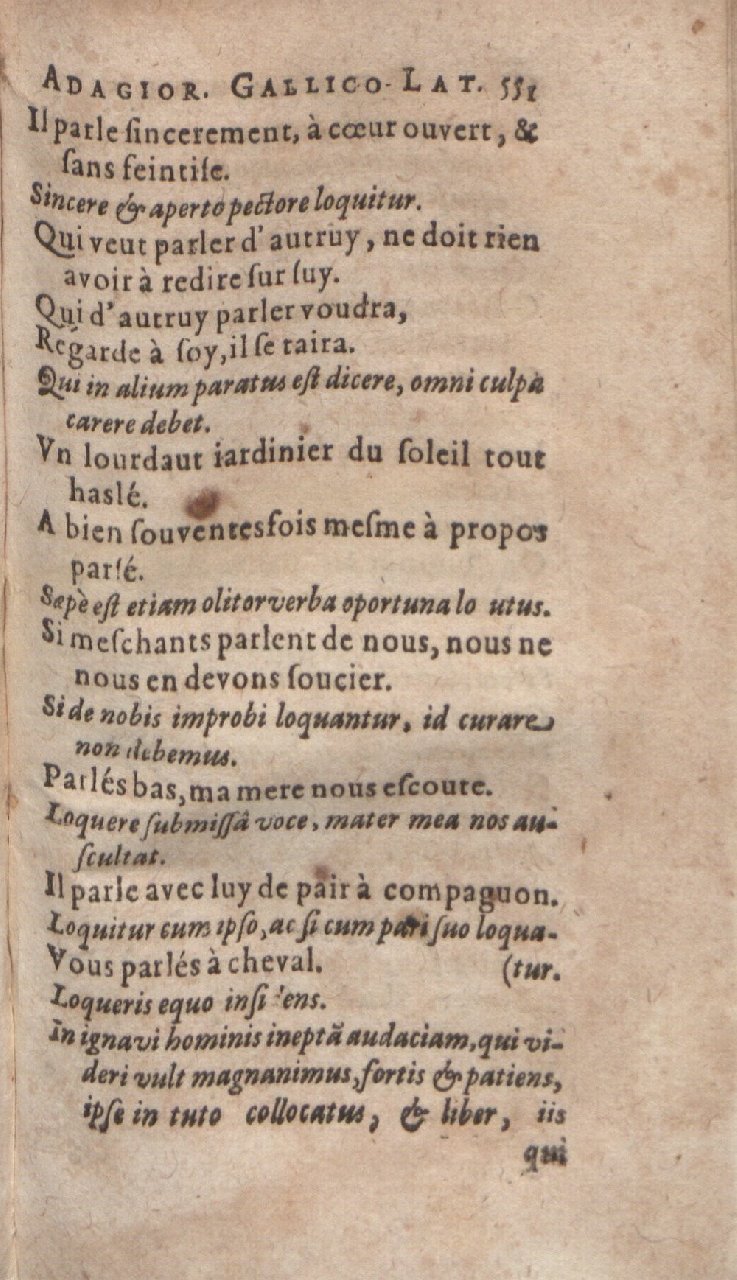 ADAGIOR. GALLICO-LAT. 551
Il parle ſincerement, à cœur ouvert, &
ſans feintiſe.
Sincere & aperto pectore loquitur.
Qui veut parler d'autruy, ne doit rien
avoir à redire ſur ſuy.
Qui d'autruy parler voudra,
Regarde à ſoy, il ſe taira.
Qui in alium paratus eſt dicere, omni culpâ
carere debet.
Vn lourdaut iardinier du ſoleil tout
haslé.
A bien ſouventesfois meſme à propos
parlé.
Sæpè eſt etiam olitor verba oportuna lo utus.
Si meſchants parlent de nous, nous ne
nous en devons ſoucier.
Si de nobis improbi loquantur, id curare
non debemus.
Parlés bas, ma mere nous eſcoute.
Loquere ſubmiſſâ voce, mater mea nos au-
ſcultat.
Il parle avec luy de pair à compaguon.
Loquitur cum ipſo, ac ſi cum pari ſuo loqua-
Vous parlés à cheval. (tur.
Loqueris equo inſi ens.
In ignavi hominis ineptā audaciam, qui vi-
deri vult magnanimus, fortis & patiens,
ipſe in tuto collocatus, & liber, iis
qui